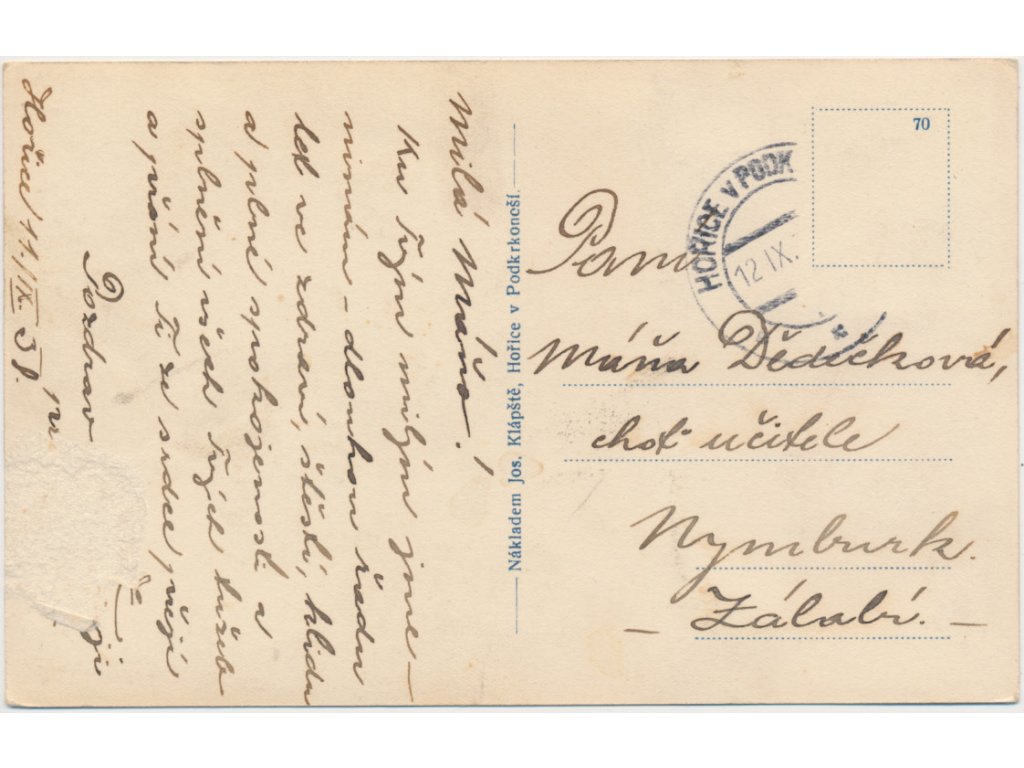 Hořice 11./IX. 38.
Milá Máňo!
Ku Tvým milým jme-
ninám – dlouhou řadu
let ve zdraví, štěstí, klidu
a plné spokojenosti a
splnění všech Tvých tužeb
a přání Ti ze srdce přeji
Pozdrav
Nákladem Jos. Klápště, Hořice v Podkrkonoší.
70
HOŘICE V PODK
12 IX.
Paní
Máňa Dědečková,
choť učitele
Nymburk.
– Zálabí. –